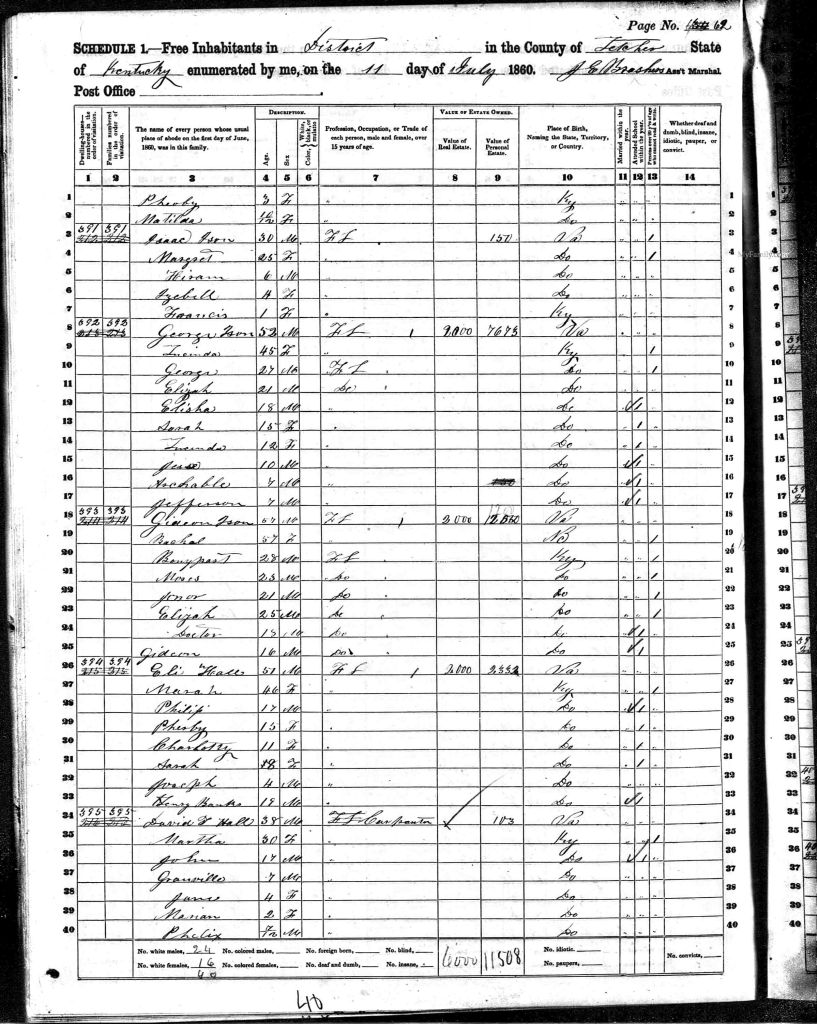 Page No. 62
SCHEDULE 1.—Free Inhabitants in District in the County of Letcher State
of Kentucky enumerated by me, on the 11 day of July 1860. Ass't Marshal.
Post Office
DESCRIPTION. VALUE OF ESTATE OWNED.
Dwelling-house—numbered in the order of visitation. Families numbered in the order of visitation. The name of every person whose usual place of abode on the first day of June, 1860, was in this family. Age. Sex. Color, White, black, or mulatto. Profession, Occupation, or Trade of each person, male and female, over 15 years of age. Value of Real Estate. Value of Personal Estate. Place of Birth, Naming the State, Territory, or Country. Married within the year. Attended School within the year. Whether deaf and dumb, blind, insane, idiotic, pauper, or convict.
1 2 3 4 5 6 7 8 9 10 11 12 13 14
1 Pheoby 3 F " Ky 1
2 Matilda F " Do 2
3 391 391 Isaac Ison 30 M F L 150 Va 1 3
4 Margret 25 F " Do 1 4
5 Hiram 6 M " Do 5
6 4 F " Do 6
7 Francis 1 F " Ky 7
8 392 392 George Ison 52 M F L 1 2000 7673 Va 8
9 Lucinda 45 F " Ky 1 9
10 George 27 M F L Do 1 10
11 Elizah 21 M Do Do 11
12 Elisha 18 M " Do 1 12
13 Sarah 15 F " Do 1 13
14 Lucinda 12 F " Do 1 14
15 Jese 10 M " Do 1 15
16 Archable 7 M " Do 1 16
17 Jefferson 7 M " Do 1 17
18 393 393 Gideon Ison 57 M F L 1 2000 Va 18
19 Rachal 57 F " NC 1 19
20 Bonypart 28 M F L Ky 1 20
21 Moses 23 M Do Do 1 21
22 21 M Do Do 1 22
23 Elizah 25 M Do Do 1 23
24 Doctor 17 M Do Do 1 24
25 Gideon 16 M Do Do 1 25
26 394 394 Eli Hall 51 M F L 1 2000 2332 Va 26
27 46 F " Ky 1 27
28 Philip 17 M " Do 1 28
29 Pheoby 13 F " Do 29
30 Charlotty 11 F " Do 1 30
31 Sarah 8 F " Do 1 31
32 Joseph 4 M " Do 32
33 Henry Banks 19 M " Do 1 33
34 395 395 David Hall 38 M F L Carpenter 103 Va 34
35 Martha 30 F " Ky 1 35
36 John 17 M " Do 1 36
37 Granville 7 M " Do 37
38 Jane 4 F " Do 38
39 Marian 2 F " Do 39
40 Phelix M " Do 40
No. white males, 24 No. colored males, No. foreign born, No. blind, 6000 11508 No. idiotic,
No. white females, 16 No. colored females, No. deaf and dumb, No. insane, No. paupers, No. convicts,
40
40